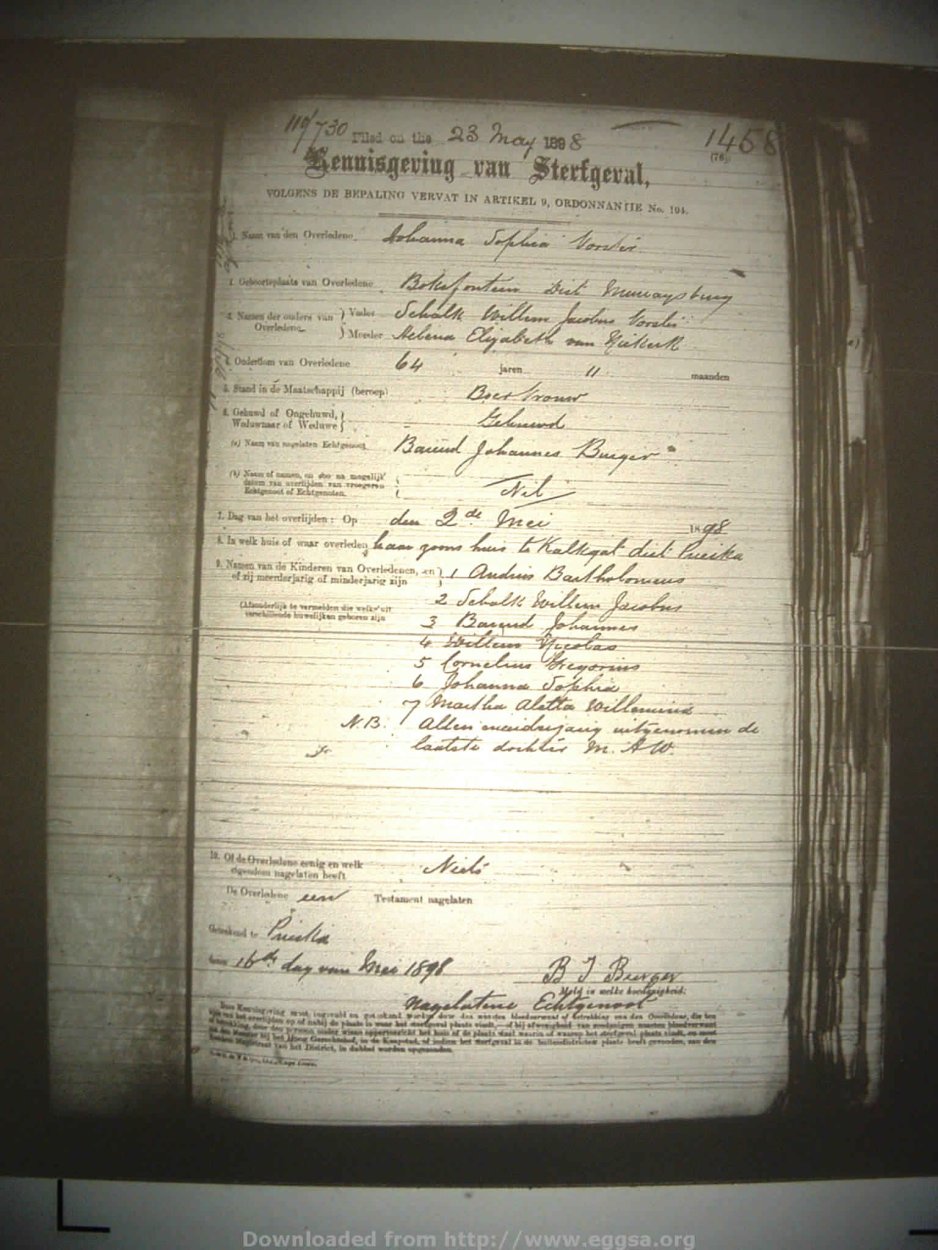 110/730 Filed on the 23 May 1898 1458
(76)
Kennisgeving van Sterfgeval,
VOLGENS DE BEPALING VERVAT IN ARTIKEL 9, ORDONNANTIE No. 104.
Naam van den Overledene Johanna Sophia Vorster
Geboorteplaats van Overledene Dist Murraysburg
3. Namen der ouders van Overledene Vader Schalk Willem Jacobus Vorster
Moeder Helena Elizabeth van Niekerk
4. Ouderdom van Overledene 64 jaren 11 maanden
5. Stand in de Maatschappij (beroep) Boer Vrouw
6. Gehuwd of Ongehuwd, Weduwnaar of Weduwe Gehuwd
(a) Naam van nagelaten Echtgenoot Barend Johannes Burger
(b) Naam of namen, en zoo na mogelijk datum van overlijden van vroegeren Echtgenoot of Echtgenoten. Nil
7. Dag van het overlijden: Op den 2de Mei 1898
8. In welk huis of waar overleden haar zoons huis te Kalkgat dist Prieska
9. Namen van de Kinderen van Overledenen, en of zij meerderjarig of minderjarig zijn 1 Andries Bartholomeus
(Afzonderlijk te vermelden die welke uit verschillende huwelijken geboren zijn 2 Schalk Willem Jacobus
3 Barend Johannes
4 Willem Nicolas
5 Cornelius Gregorius
6 Johanna Sophia
7 Martha Aletta Willemina
N.B. Allen uitgenomen de
laatste dochter M. A W.
10. Of de Overledene eenig en welk eigendom nagelaten heeft Niets
De Overledene een Testament nagelaten
Getekend te Prieska
den 16de dag van Mei 1898 B J Burger
Meld in welke hoedanigheid:
Nagelatene Echtgenoot
Downloaded from http://www.eggsa.org